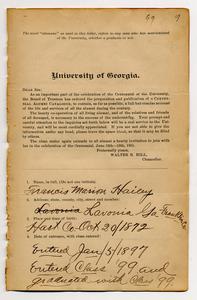 59
The word "alumnus" as used in this letter, refers to any man who has matriculated
at the University, whether a graduate or not.
University of Georgia.
DEAR SIR:
As an important part of the celebration of the Centennial of the University,
the Board of Trustees has ordered the preparation and publication of a CENTEN-
NIAL ALUMNI CATALOGUE, to contain, so far as possible, a full but concise account
of the life and services of all the alumni since the beginning.
The hearty co-operation of all living alumni, and of the relatives and friends
of all deceased, is necessary to the success of the undertaking. Your prompt and
careful attention to the inquiries herein below will be a real service to the Uni-
versity, and will be most cordially appreciated. If you are not able to give the
information under any head, please leave the space blank, so that it may be filled
by others.
The class under again extends to all alumni a hearty invitation to join with
her in the celebration of the Centennial, June
Fraternally yours,
WALTER B. HILL,
Chancellor.
1. Name, in full, (Do not use initials).
Francis Marion Hailey
2. Address, state, county, city, street and number:
Lavonia Lavonia Ga Franklin Co
3. Place and Date of birth:
Hart Co Oct 20 1872
4. Date of entrance, with class entered:
Entered Jan / 5 / 1897
Entered Class '99 and
graduated with Class 99.